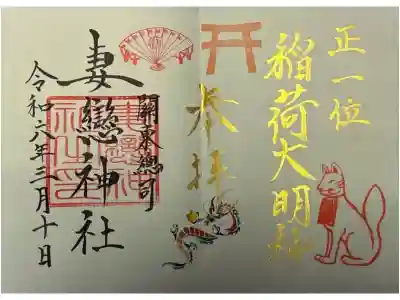 正一位
稲荷大明神
奉拝
關東總司
妻戀神社
令和六年三月十日